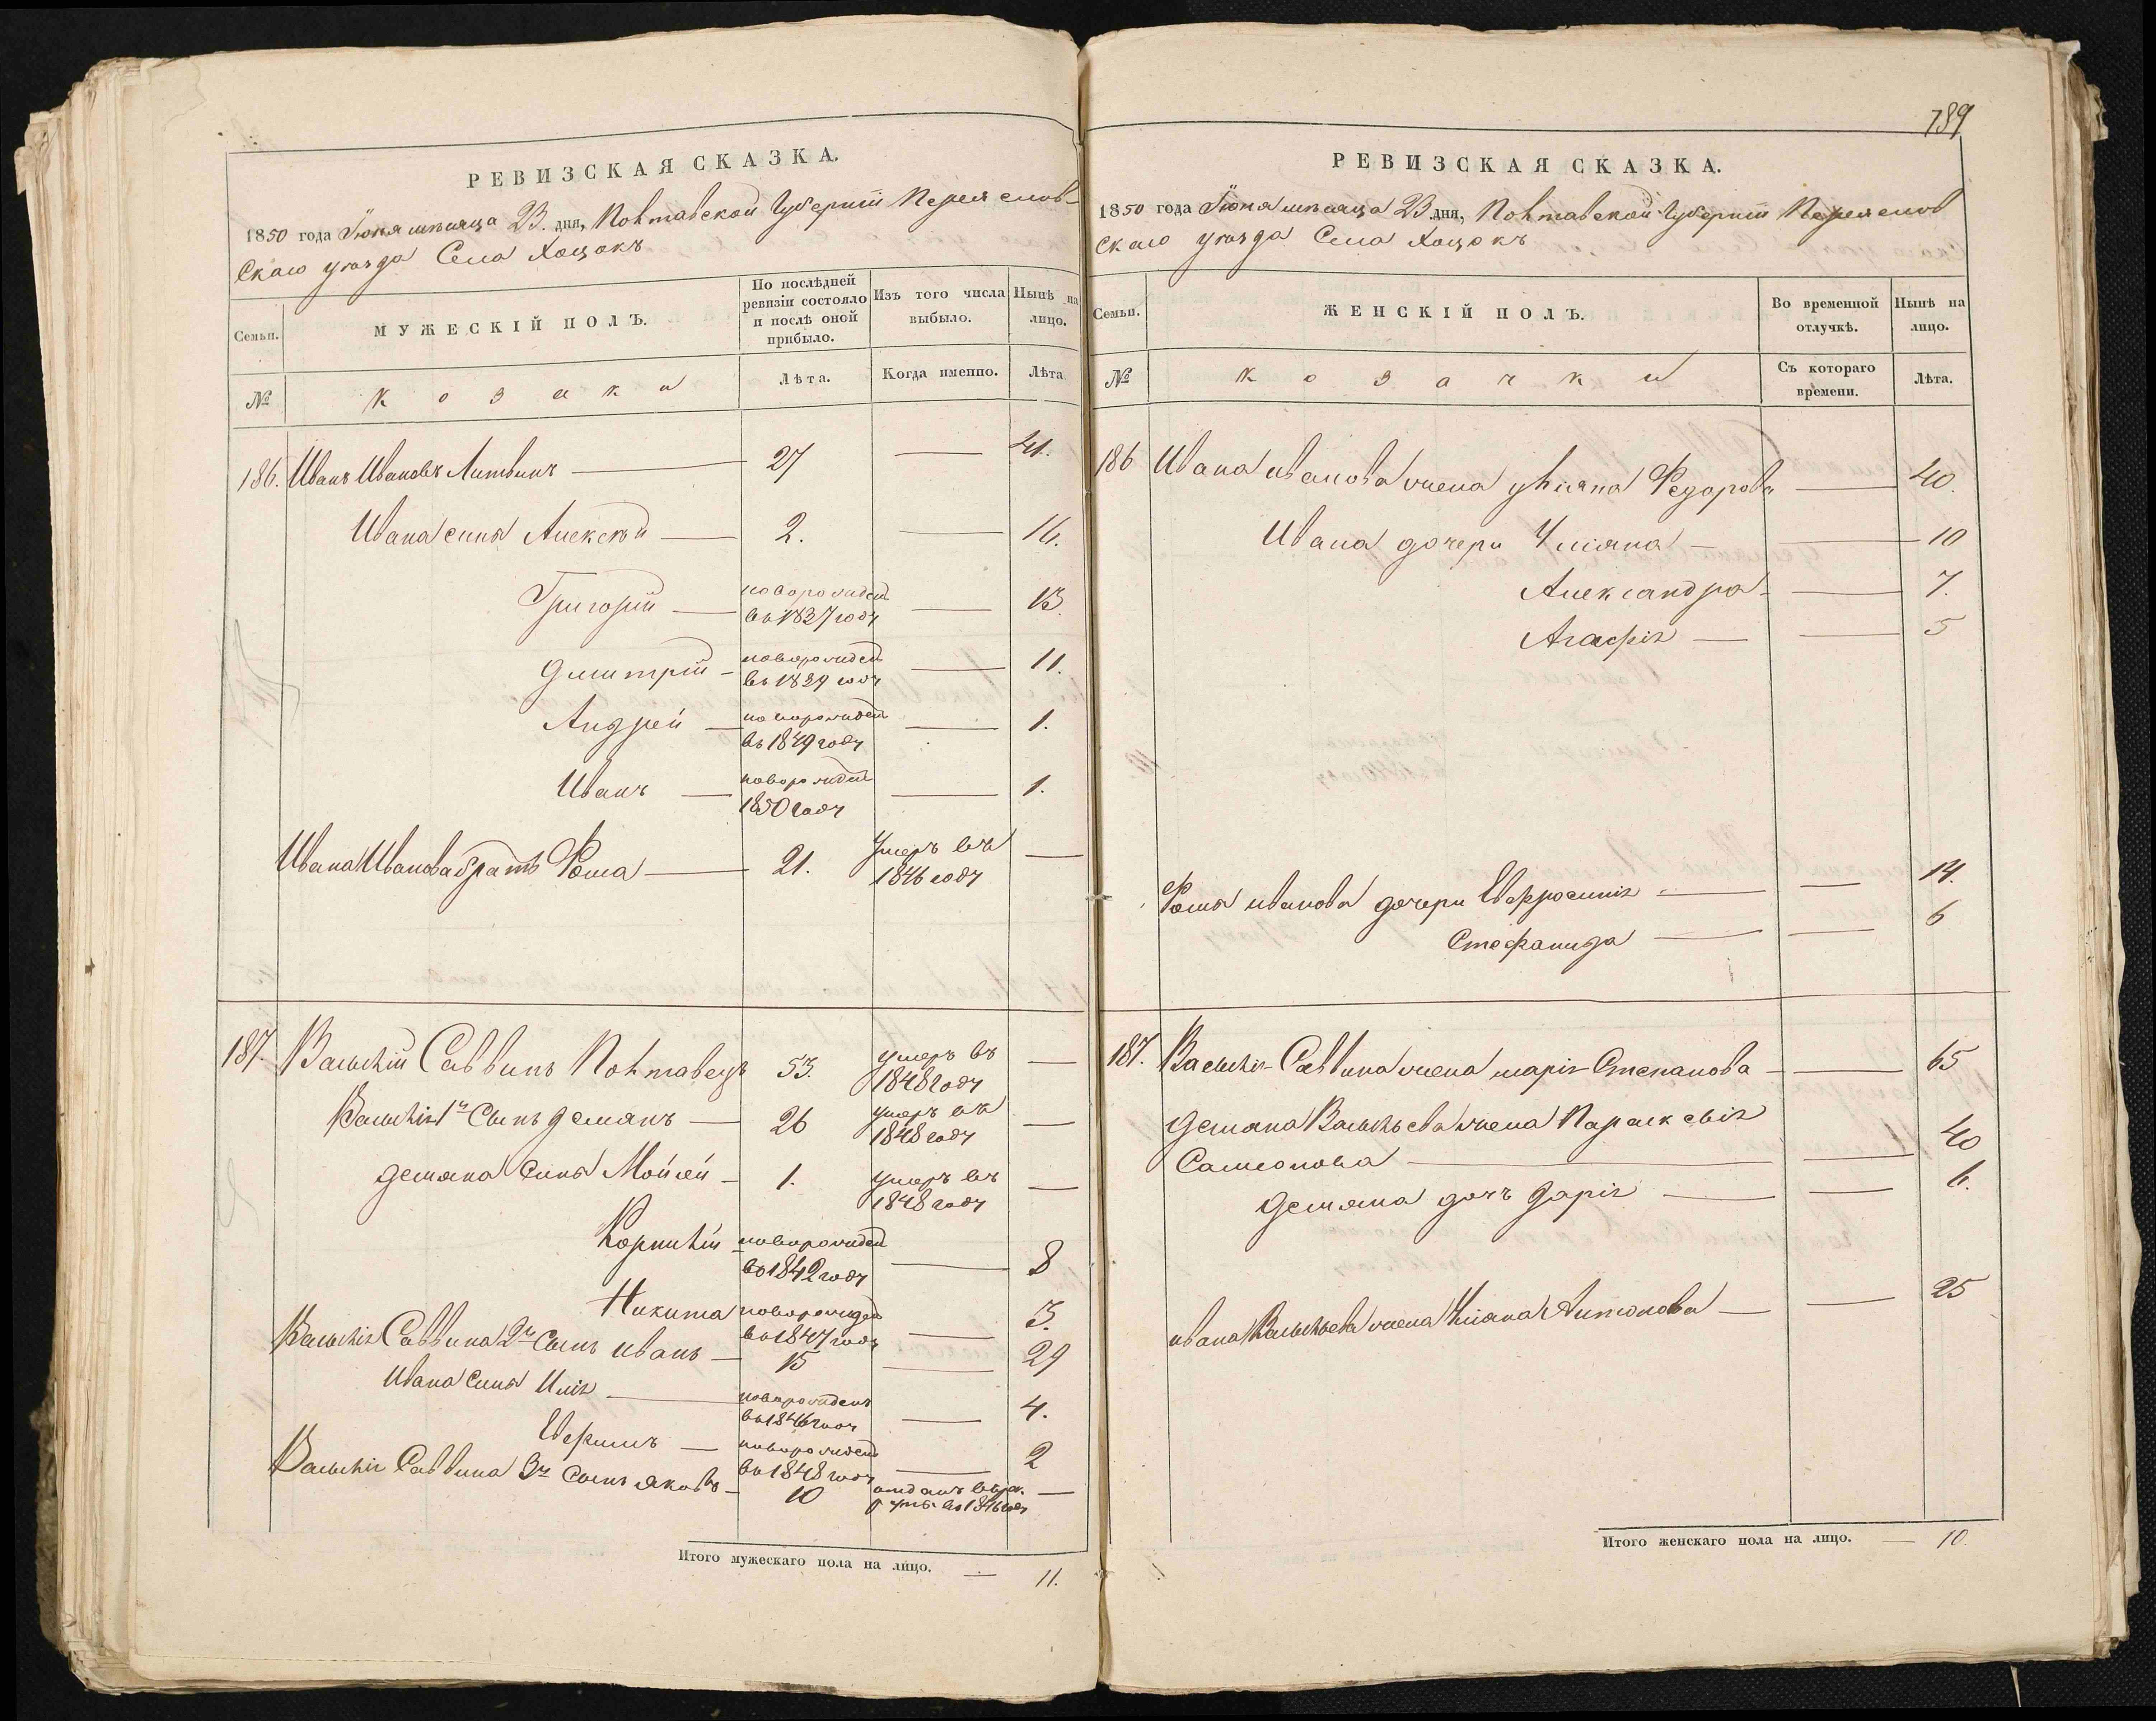 РЕВИЗСКАЯ СКАЗКА.
1850 года Іюня мѣсяца 23. дня, Полтавской Губерніи Переяслов-
скаго уѣзда Села Хоцокъ
Семьи.
МУЖЕСКІЙ ПОЛЪ.
По послѣдней ревизіи состояло и послѣ оной прибыло.
Изъ того числа выбыло.
Нынѣ на лицо.
№
козаки
Лѣта.
Когда именно.
Лѣта
186. Иванъ Ивановъ Литвинъ — 27 — 41.
Ивана сыны Алексѣй — 2. — 16.
Григорій — новорожден въ 1837 году — 13.
Дмитрій — новорожден въ 1839 году — 11.
Андрей — новорожден въ 1849 году — 1.
Иванъ — новорожден 1850 году — 1.
Ивана Иванова братъ Фома — 21. умеръ въ 1846 году —
187. Василій Саввинъ Полтавецъ 53. умеръ въ 1848 году —
Василія 1й Сынъ Демянъ — 26 умеръ въ 1848 году —
Демяна Сыны Мойсей — 1. умеръ въ 1848 году —
Корнилій — новорожден въ 1842 году — 8
Никита новорожден въ 1847 году — 3.
Василія Саввина 2й Сынъ Иванъ — 15 — 29
Ивана Сыны Илія — новорожденъ въ 1846 году — 4.
Евфимъ — новорожден въ 1848 году — 2
Василія Саввина 3й Сынъ Яковъ — 10 отданъ въ рекруты въ 1846 году —
Итого мужескаго пола на лицо. — 11.
789
РЕВИЗСКАЯ СКАЗКА.
1850 года Іюня мѣсяца 23 дня, Полтавской Губерніи Переяслов
скаго уѣзда Села Хоцокъ
Семьи.
ЖЕНСКІЙ ПОЛЪ.
Во временной отлучкѣ.
Нынѣ на лицо.
№
козачки
Съ котораго времени.
Лѣта.
186 Ивана Иванова жена Уліяна Федорова — 40.
Ивана дочери Уліяна — — 10
Александра — — 7.
Агафія — — 5
Фомы Иванова дочери Евфросинія — — 14.
Стефанида — — 6
187. Василія Саввина жена Марія Степанова — — 65
Демяна Васильева жена Параскевія
Самсонова — — 40
Демяна дочь Дарія — — 6.
Ивана Васильева жена Уліяна Антонова — — 25
Итого женскаго пола на лицо. — 10.